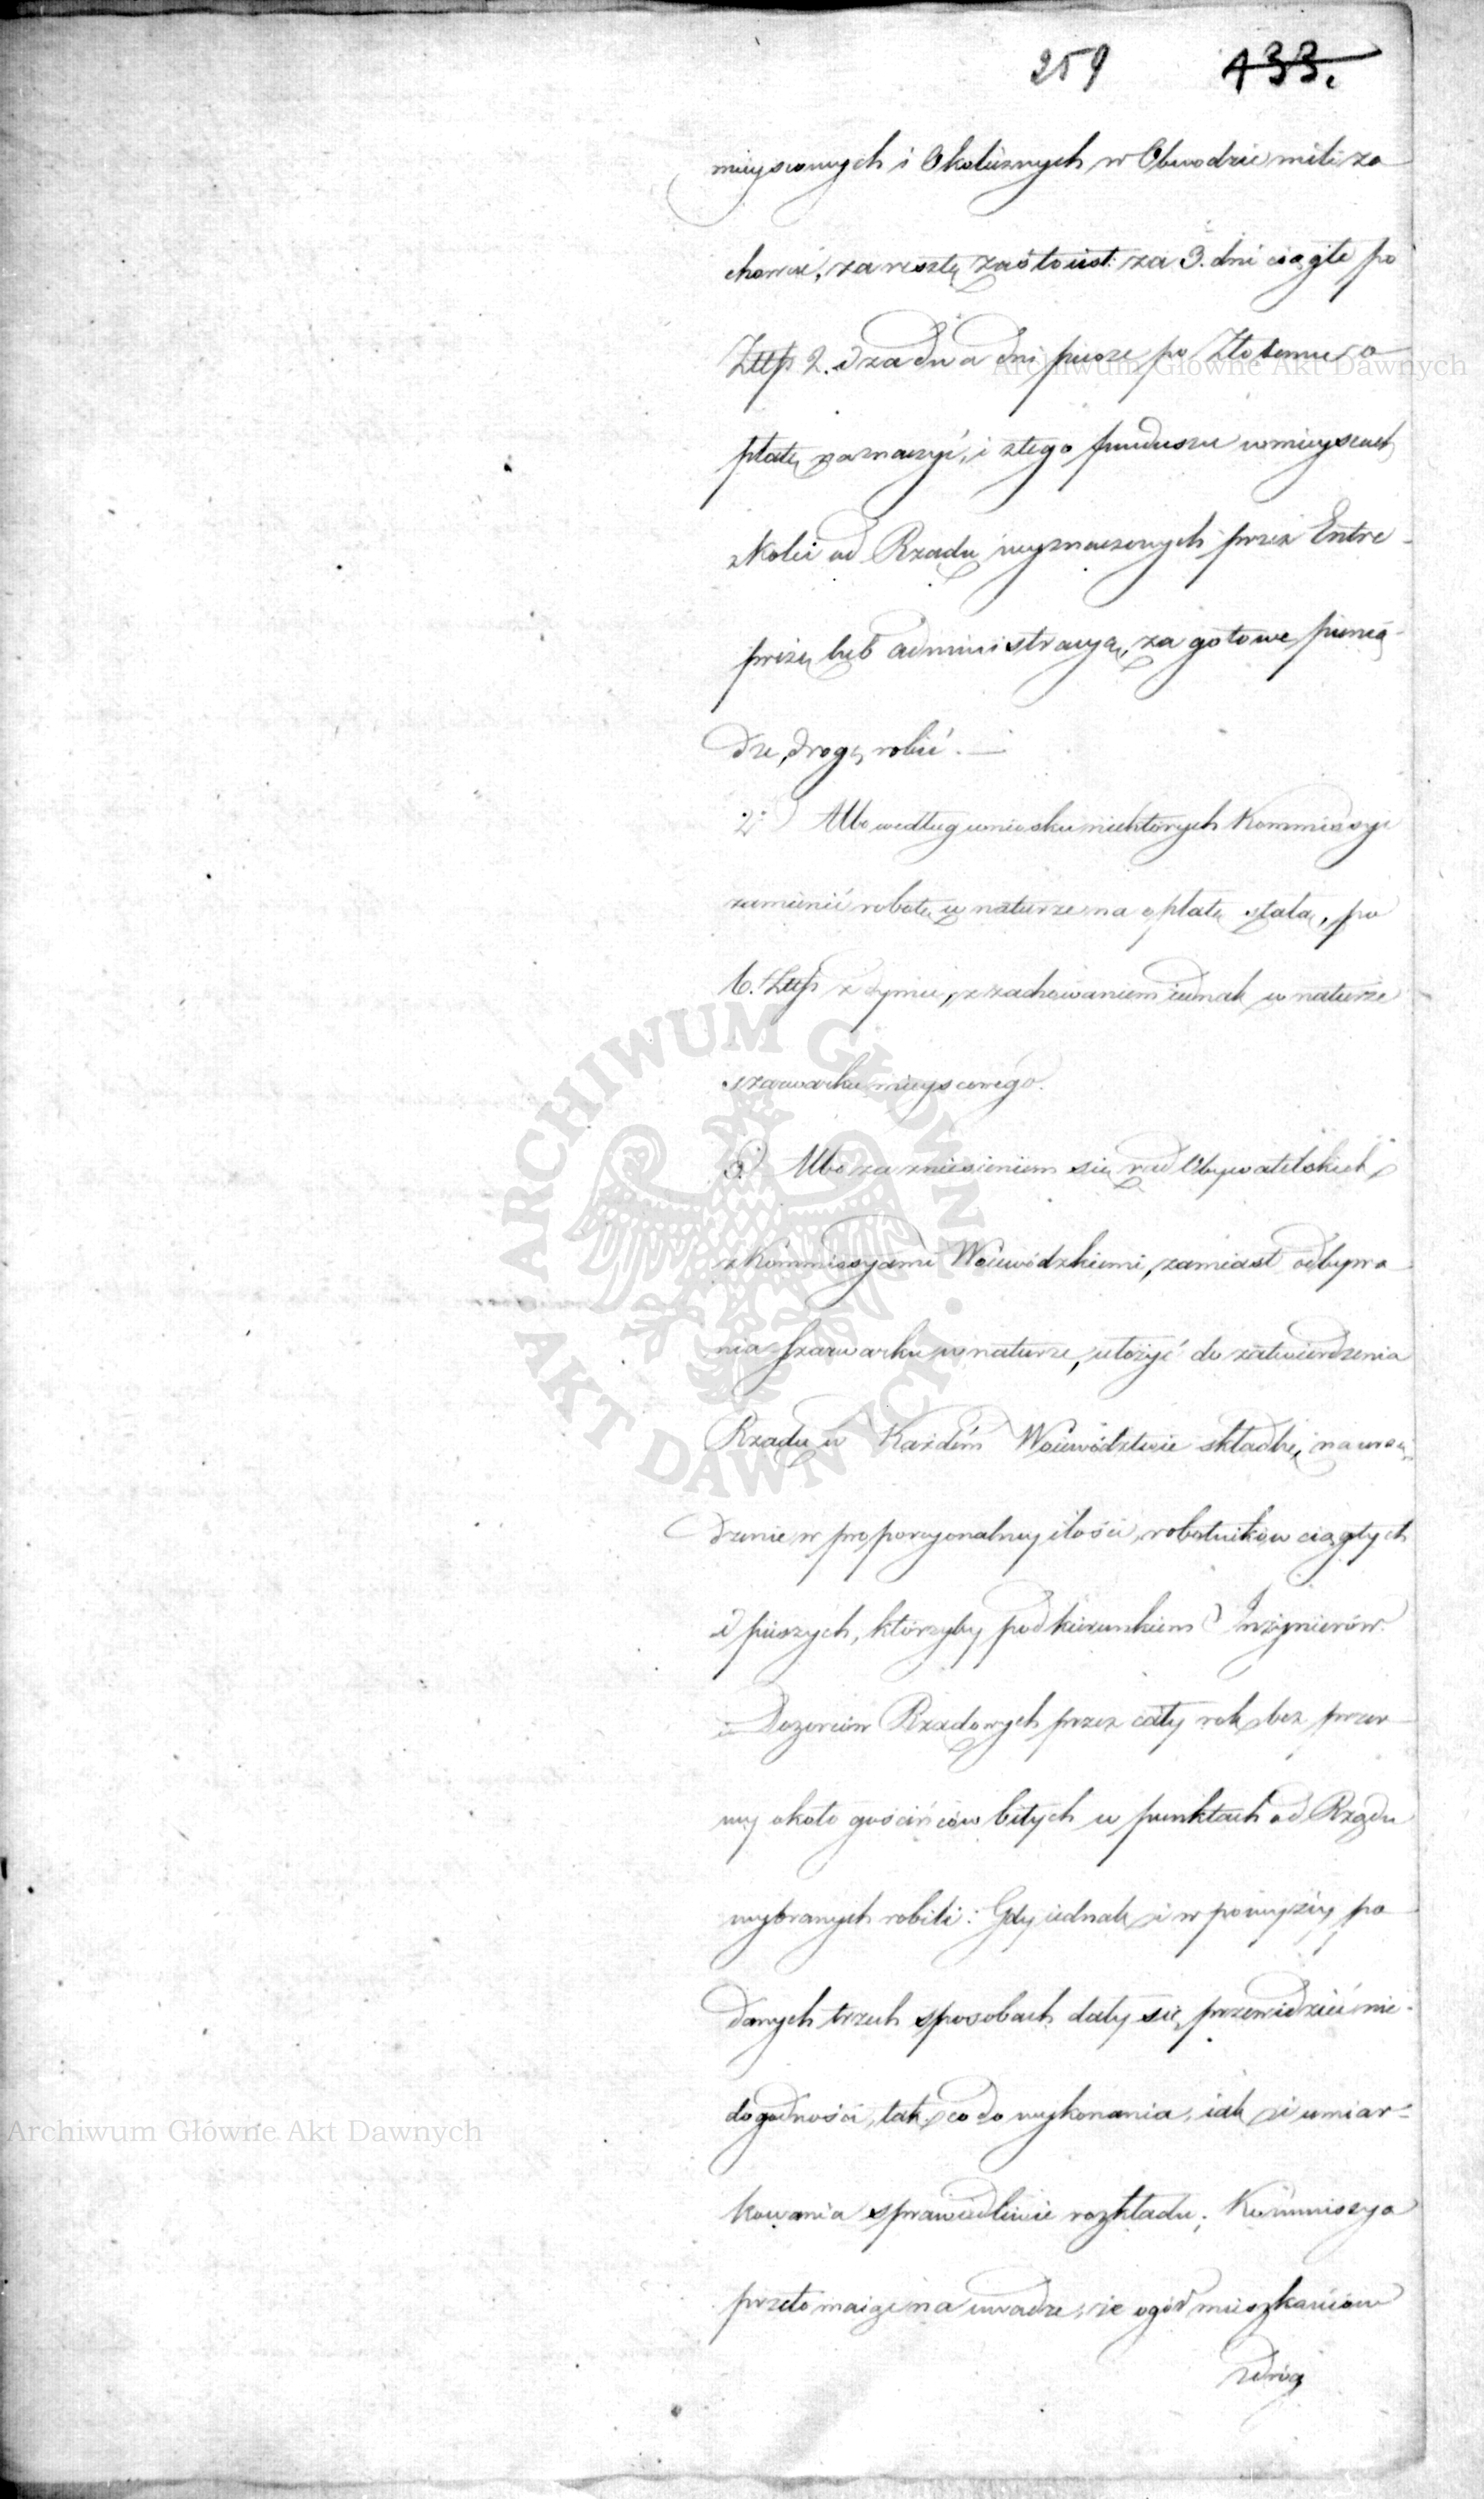 259 133.
mieyscowych i Okolicznych w Obwodzie mili za
chować, za resztę zaś to iest: za 3. dni ciągłe po
Złłp 2. i za dwa dni piesze po Złotemu o
płatę naznaczyć, i z tego funduszu w mieyscach
z Kolei od Rządu wyznaczonych przez Entre-
pryzę lub administracyą, za gotowe pienią-
dze, drogę robić. —
2.) Albo według wniosku niektórych Kommissyi
zamienić robotę w naturze na opłatę stałą, po
6. Złłp z dymu, z zachowaniem iednak w naturze
szarwarku mieyscowego.
3.) Albo za zniesieniem się rad Obywatelskich
z Kommissyami Woiewódzkiemi, zamiast odbywa
nia szarwarku w naturze, ułożyć do zatwierdzenia
Rządu w Każdém Woiewództwie składkę, na urzą
dzenie w proporcyonalney ilości, robotników ciągłych
i pieszych, którzyby pod kierunkiem Inżynierów
i Dozorców Rządowych przez cały rok bez przer-
wy około gościńców bitych w punktach od Rządu
wybranych robili: Gdy iednak i w powyżey po
danych trzech sposobach dały się przewidzieć nie-
dogodności, tak co do wykonania, iak i umiar-
kowania sprawiedliwie rozkładu; Kommissya
przeto maiąc na uwadze, że ogół mieszkańców
z dróg
Archiwum Główne Akt Dawnych
Archiwum Główne Akt Dawnych
ARCHIWUM GŁÓWNE AKT DAWNYCH